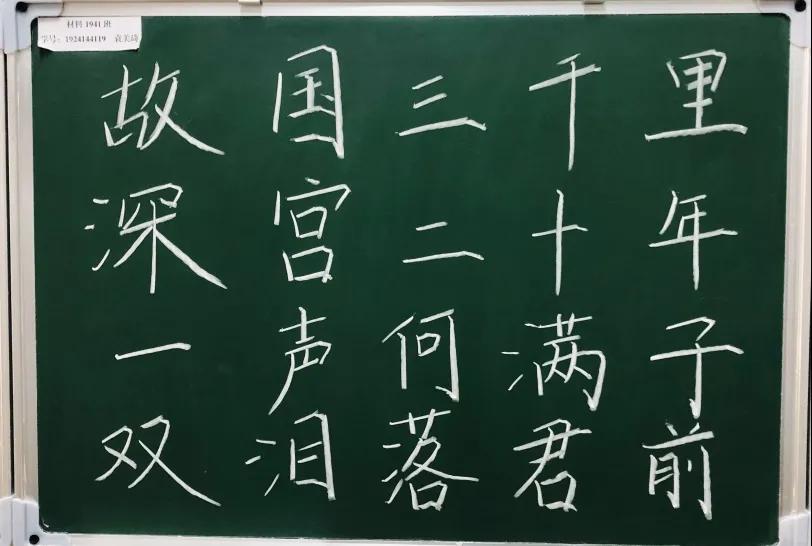 材料1941班
学号：1924144119 袁美琦
故国三千里
深宫二十年
一声何满子
双泪落君前